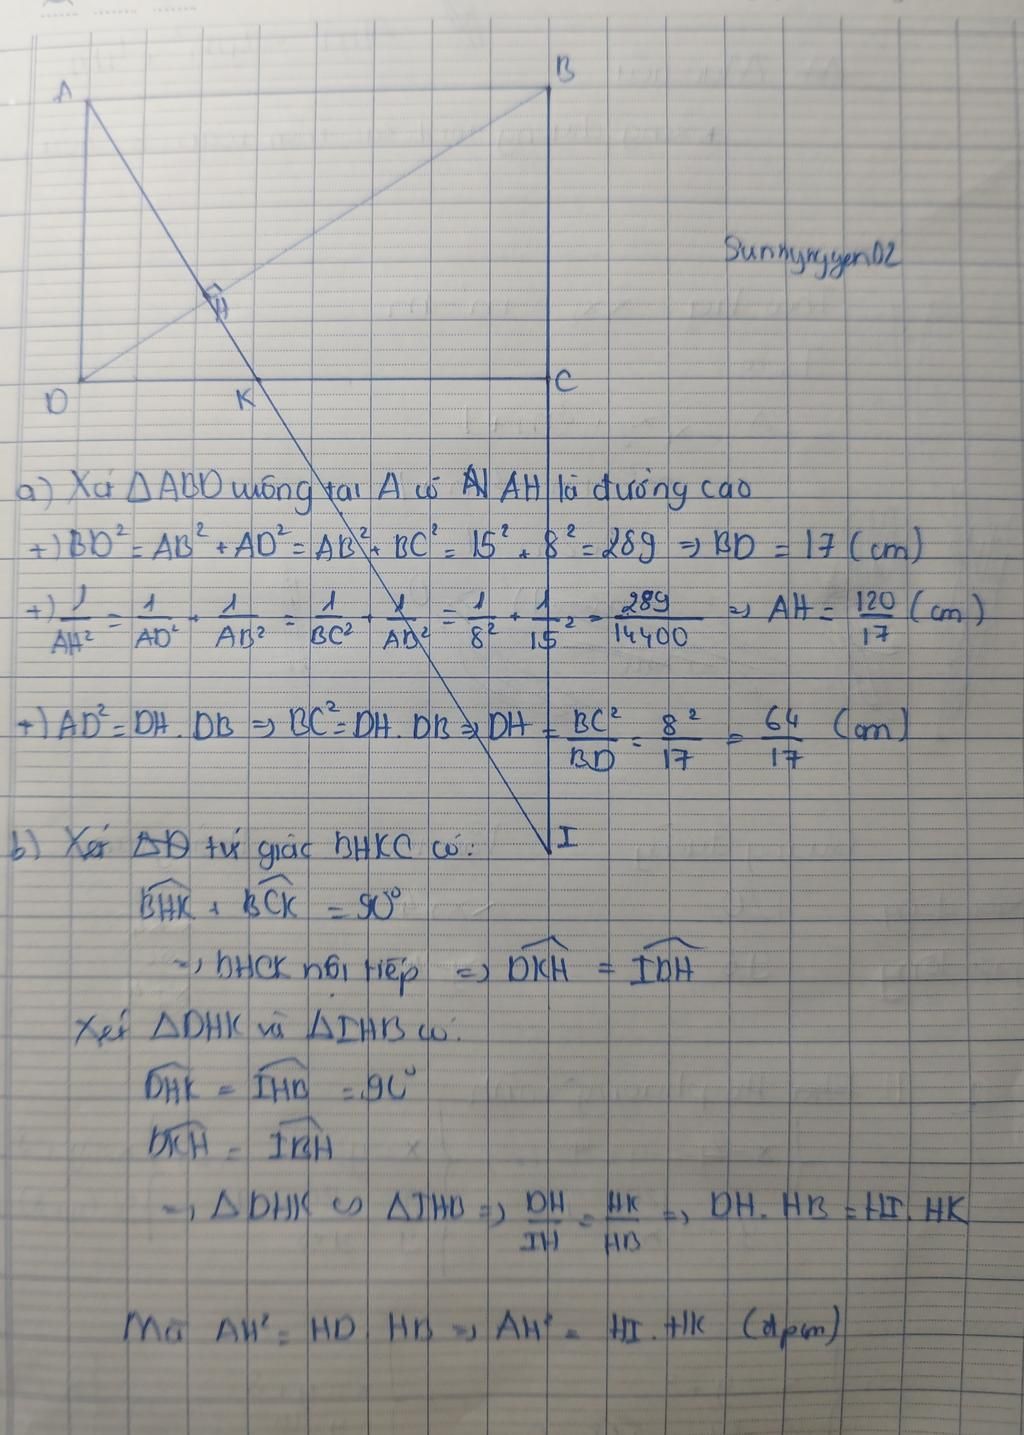 A
B
H
D
K
C
Sunnynguyen02
a) Xét △ABD vuông tại A có AH là đường cao
+) BD² = AB² + AD² = AB² + BC² = 15² + 8² = 289 => BD = 17 (cm)
+) 1/AH² = 1/AD² + 1/AB² = 1/BC² + 1/AB² = 1/8² + 1/15² = 289/14400 => AH = 120/17 (cm)
+) AD² = DH . DB => BC² = DH . DB => DH = BC²/BD = 8²/17 = 64/17 (cm)
I
b) Xét tứ giác BHKC có:
BHK + BCK = 90°
=> BHCK nội tiếp => DKH = IBH
Xét △DHK và △IHB có:
DHK = IHB = 90°
DKH = IBH
=> △DHK ∽ △IHB => DH/IH = HK/HB => DH . HB = HI . HK
Mà AH² = HD . HB => AH² = HI . HK (đpcm)